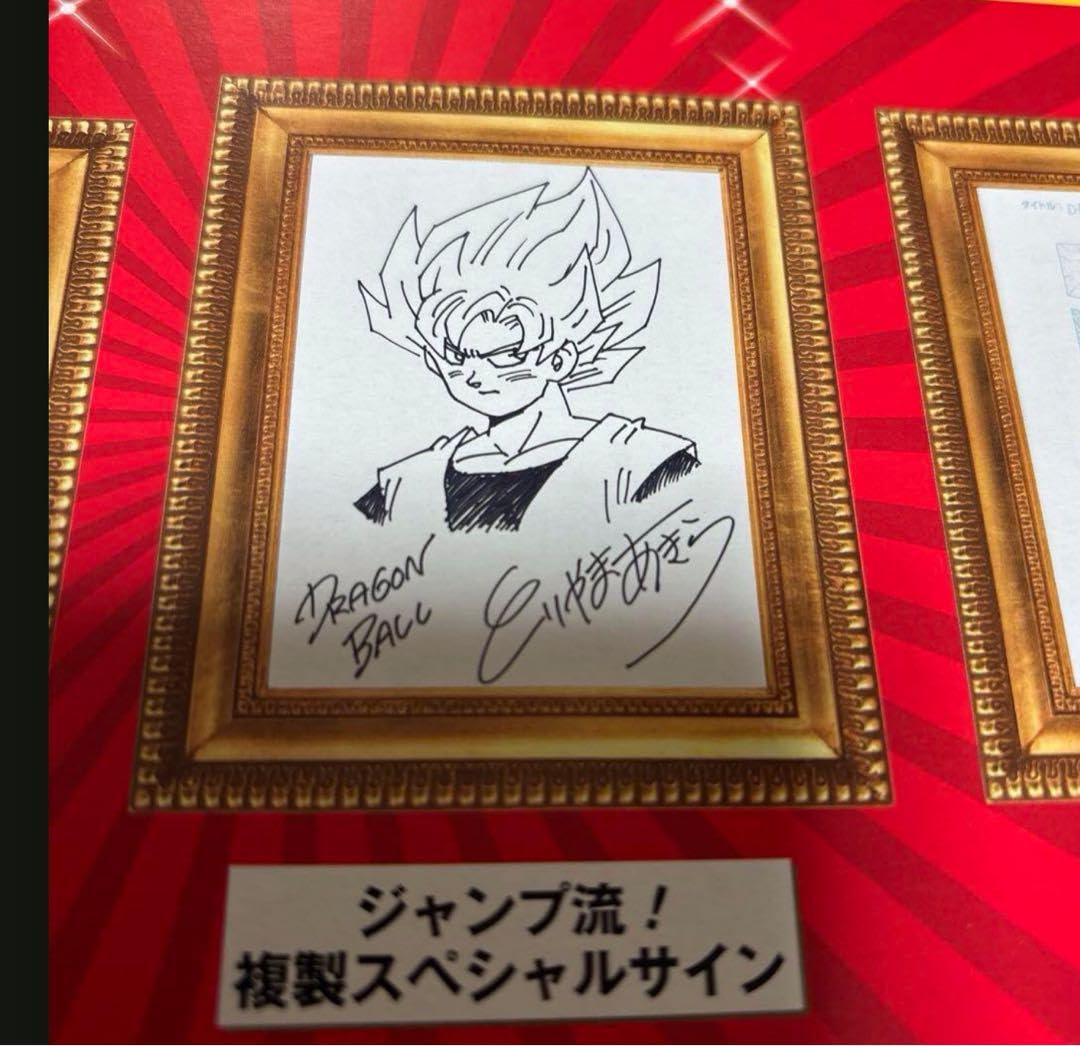 タイトル：D
DRAGON
BALL
とりやまあきら
ジャンプ流！
複製スペシャルサイン